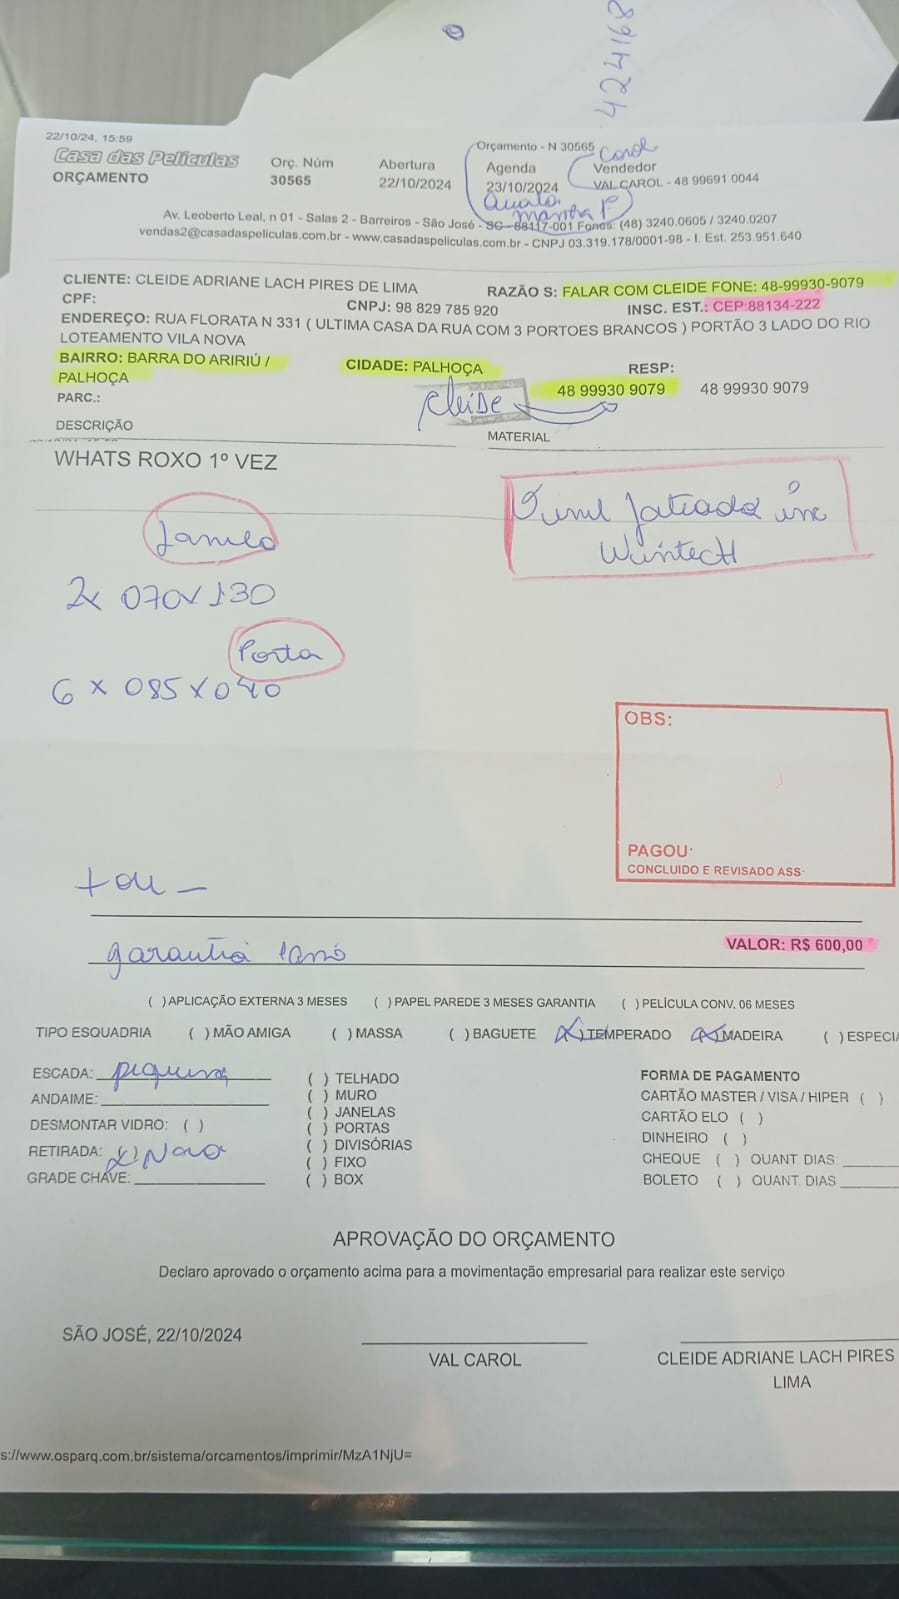 424168
22/10/24, 15:59
Casa das Películas
ORÇAMENTO
Orç. Núm
30565
Abertura
22/10/2024
Orçamento - N 30565
Agenda
23/10/2024
Quarta
manhã
Carol
Vendedor
VAL CAROL - 48 99691 0044
Av. Leoberto Leal, n 01 - Salas 2 - Barreiros - São José - SC - 88117-001 Fones: (48) 3240.0605 / 3240.0207
vendas2@casadaspeliculas.com.br - www.casadaspeliculas.com.br - CNPJ 03.319.178/0001-98 - I. Est. 253.951.640
CLIENTE: CLEIDE ADRIANE LACH PIRES DE LIMA
RAZÃO S: FALAR COM CLEIDE FONE: 48-99930-9079
CPF:
CNPJ: 98 829 785 920
INSC. EST.: CEP:88134-222
ENDEREÇO: RUA FLORATA N 331 ( ULTIMA CASA DA RUA COM 3 PORTOES BRANCOS ) PORTÃO 3 LADO DO RIO
LOTEAMENTO VILA NOVA
BAIRRO: BARRA DO ARIRIÚ /
PALHOÇA
CIDADE: PALHOÇA
RESP:
48 99930 9079
48 99930 9079
PARC.:
Cleide
DESCRIÇÃO
MATERIAL
WHATS ROXO 1º VEZ
Vinil Jateado
Wintech
Janela
2x 070x130
Porta
6 x 085 x 040
OBS:
PAGOU:
CONCLUIDO E REVISADO ASS:
garantia
VALOR: R$ 600,00
( ) APLICAÇÃO EXTERNA 3 MESES ( ) PAPEL PAREDE 3 MESES GARANTIA ( ) PELÍCULA CONV. 06 MESES
TIPO ESQUADRIA ( ) MÃO AMIGA ( ) MASSA ( ) BAGUETE (x) TEMPERADO (x) MADEIRA ( ) ESPECIA
ESCADA: pequena
ANDAIME:
DESMONTAR VIDRO: ( )
RETIRADA: (x) Nao
GRADE CHAVE:
( ) TELHADO
( ) MURO
( ) JANELAS
( ) PORTAS
( ) DIVISÓRIAS
( ) FIXO
( ) BOX
FORMA DE PAGAMENTO
CARTÃO MASTER / VISA / HIPER ( )
CARTÃO ELO ( )
DINHEIRO ( )
CHEQUE ( ) QUANT. DIAS
BOLETO ( ) QUANT. DIAS
APROVAÇÃO DO ORÇAMENTO
Declaro aprovado o orçamento acima para a movimentação empresarial para realizar este serviço
SÃO JOSÉ, 22/10/2024
VAL CAROL
CLEIDE ADRIANE LACH PIRES
LIMA
s://www.osparq.com.br/sistema/orcamentos/imprimir/MzA1NjU=